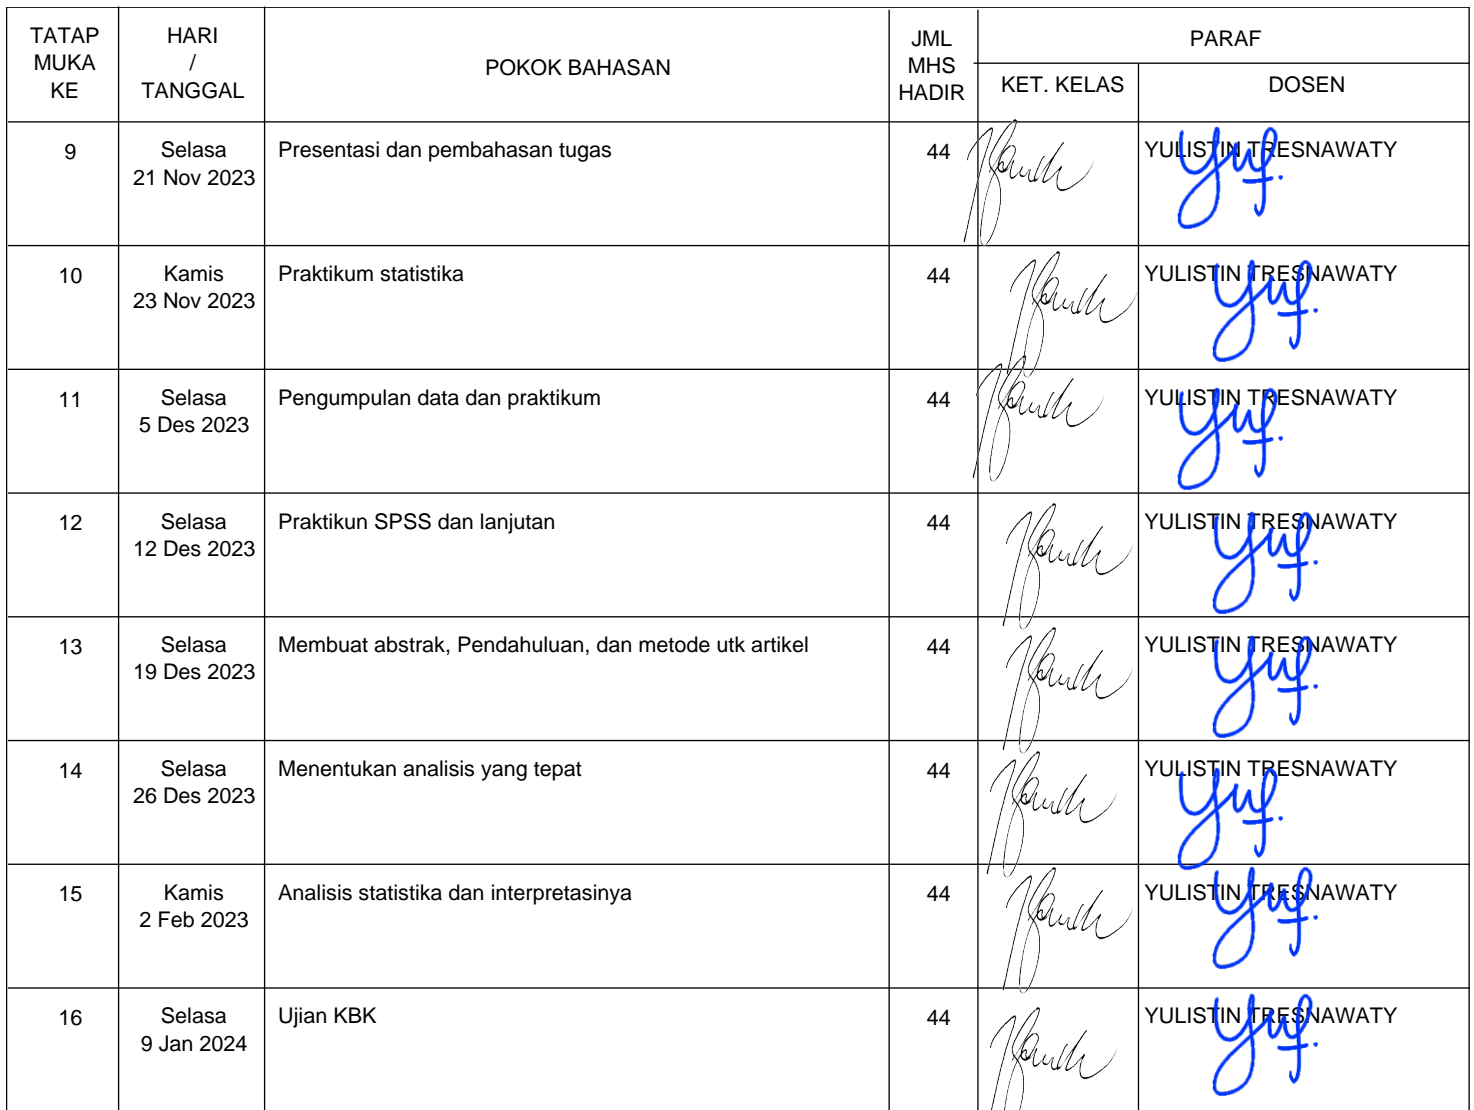 TATAP MUKA KE
HARI / TANGGAL
POKOK BAHASAN
JML MHS HADIR
PARAF
KET. KELAS
DOSEN
9
Selasa
21 Nov 2023
Presentasi dan pembahasan tugas
44
YULISTIN TRESNAWATY
10
Kamis
23 Nov 2023
Praktikum statistika
44
YULISTIN TRESNAWATY
11
Selasa
5 Des 2023
Pengumpulan data dan praktikum
44
YULISTIN TRESNAWATY
12
Selasa
12 Des 2023
Praktikun SPSS dan lanjutan
44
YULISTIN TRESNAWATY
13
Selasa
19 Des 2023
Membuat abstrak, Pendahuluan, dan metode utk artikel
44
YULISTIN TRESNAWATY
14
Selasa
26 Des 2023
Menentukan analisis yang tepat
44
YULISTIN TRESNAWATY
15
Kamis
2 Feb 2023
Analisis statistika dan interpretasinya
44
YULISTIN TRESNAWATY
16
Selasa
9 Jan 2024
Ujian KBK
44
YULISTIN TRESNAWATY